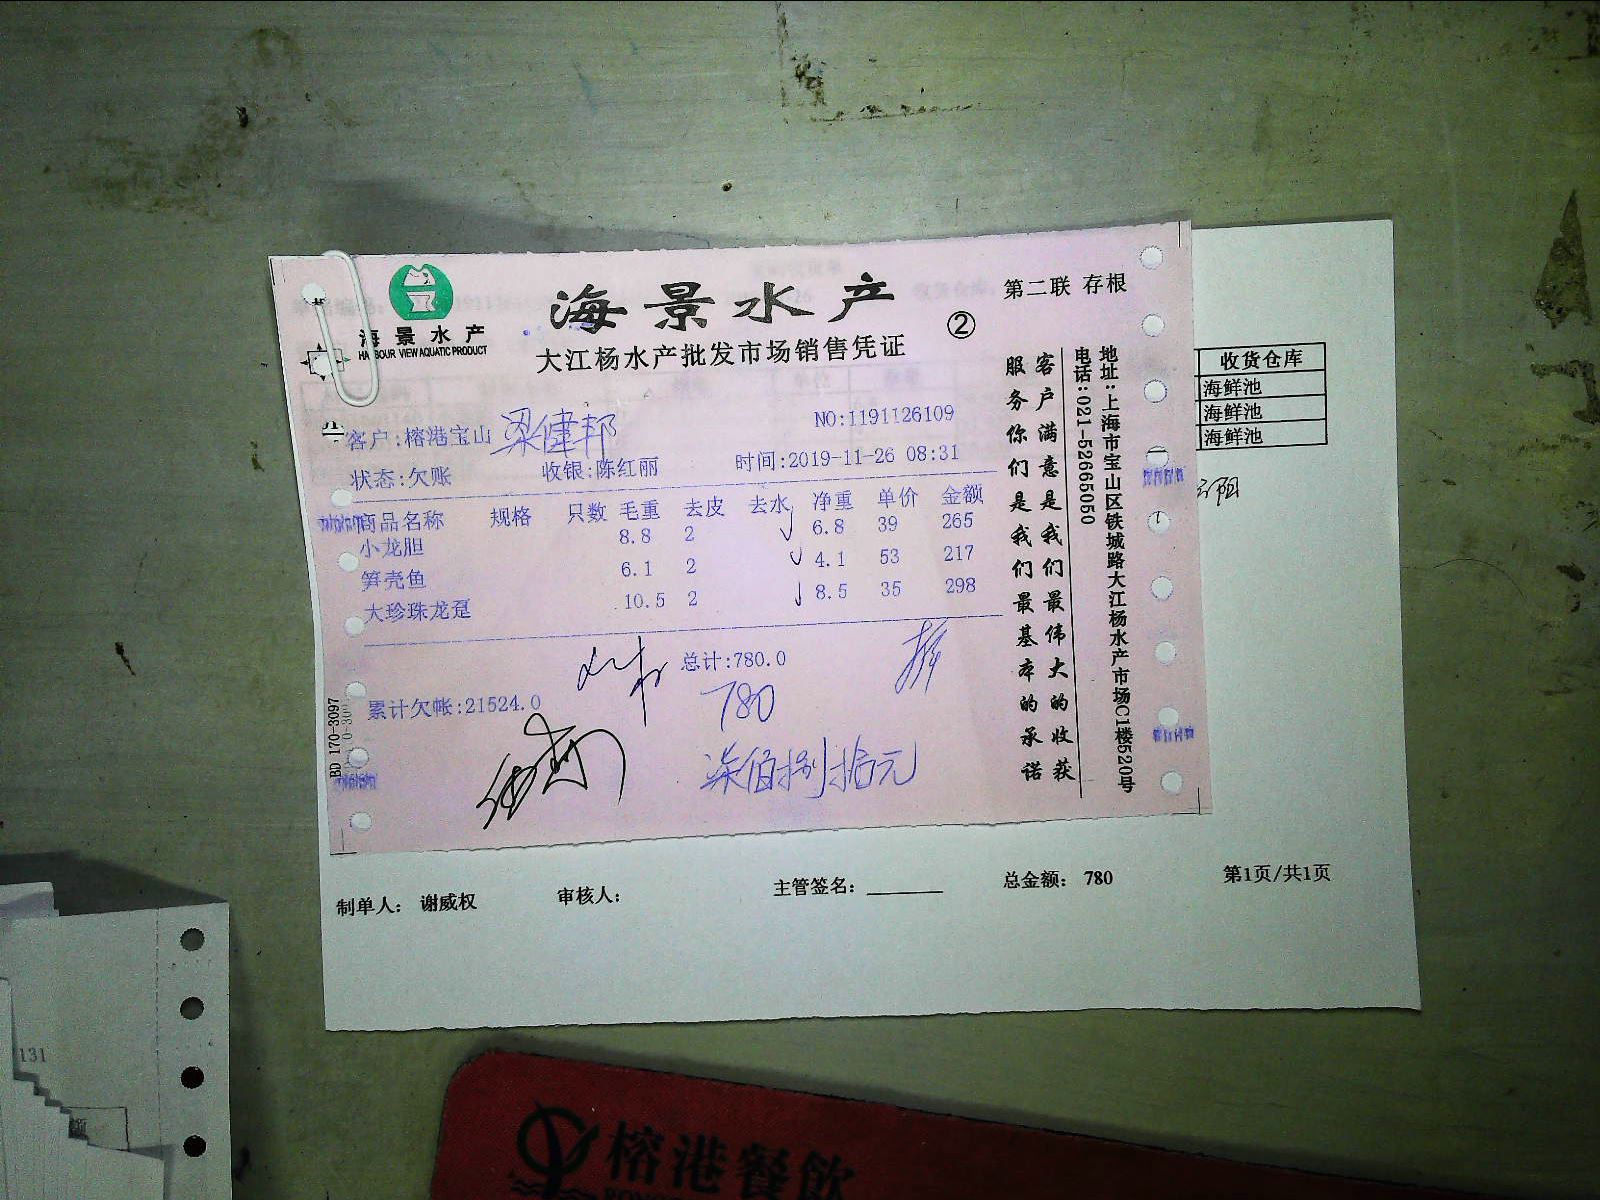 海景水产
HARBOUR VIEW AQUATIC PRODUCT
海景水产
大江杨水产批发市场销售凭证
②
第二联 存根
客户:榕港宝山 梁健邦
NO:1191126109
状态:欠账 收银:陈红丽 时间:2019-11-26 08:31
商品名称 规格 只数 毛重 去皮 去水 净重 单价 金额
小龙胆 8.8 2 6.8 39 265
笋壳鱼 6.1 2 4.1 53 217
大珍珠龙趸 10.5 2 8.5 35 298
总计:780.0
累计欠帐:21524.0
780
柒佰捌拾元
客户满意是我们最伟大的收获
服务你们是我们最基本的承诺
地址:上海市宝山区铁城路大江杨水产市场C1楼520号
电话:021-52665050
BD 170-3097
收货仓库
海鲜池
海鲜池
海鲜池
制单人: 谢威权 审核人: 主管签名: 总金额: 780 第1页/共1页
131
榕港餐飲